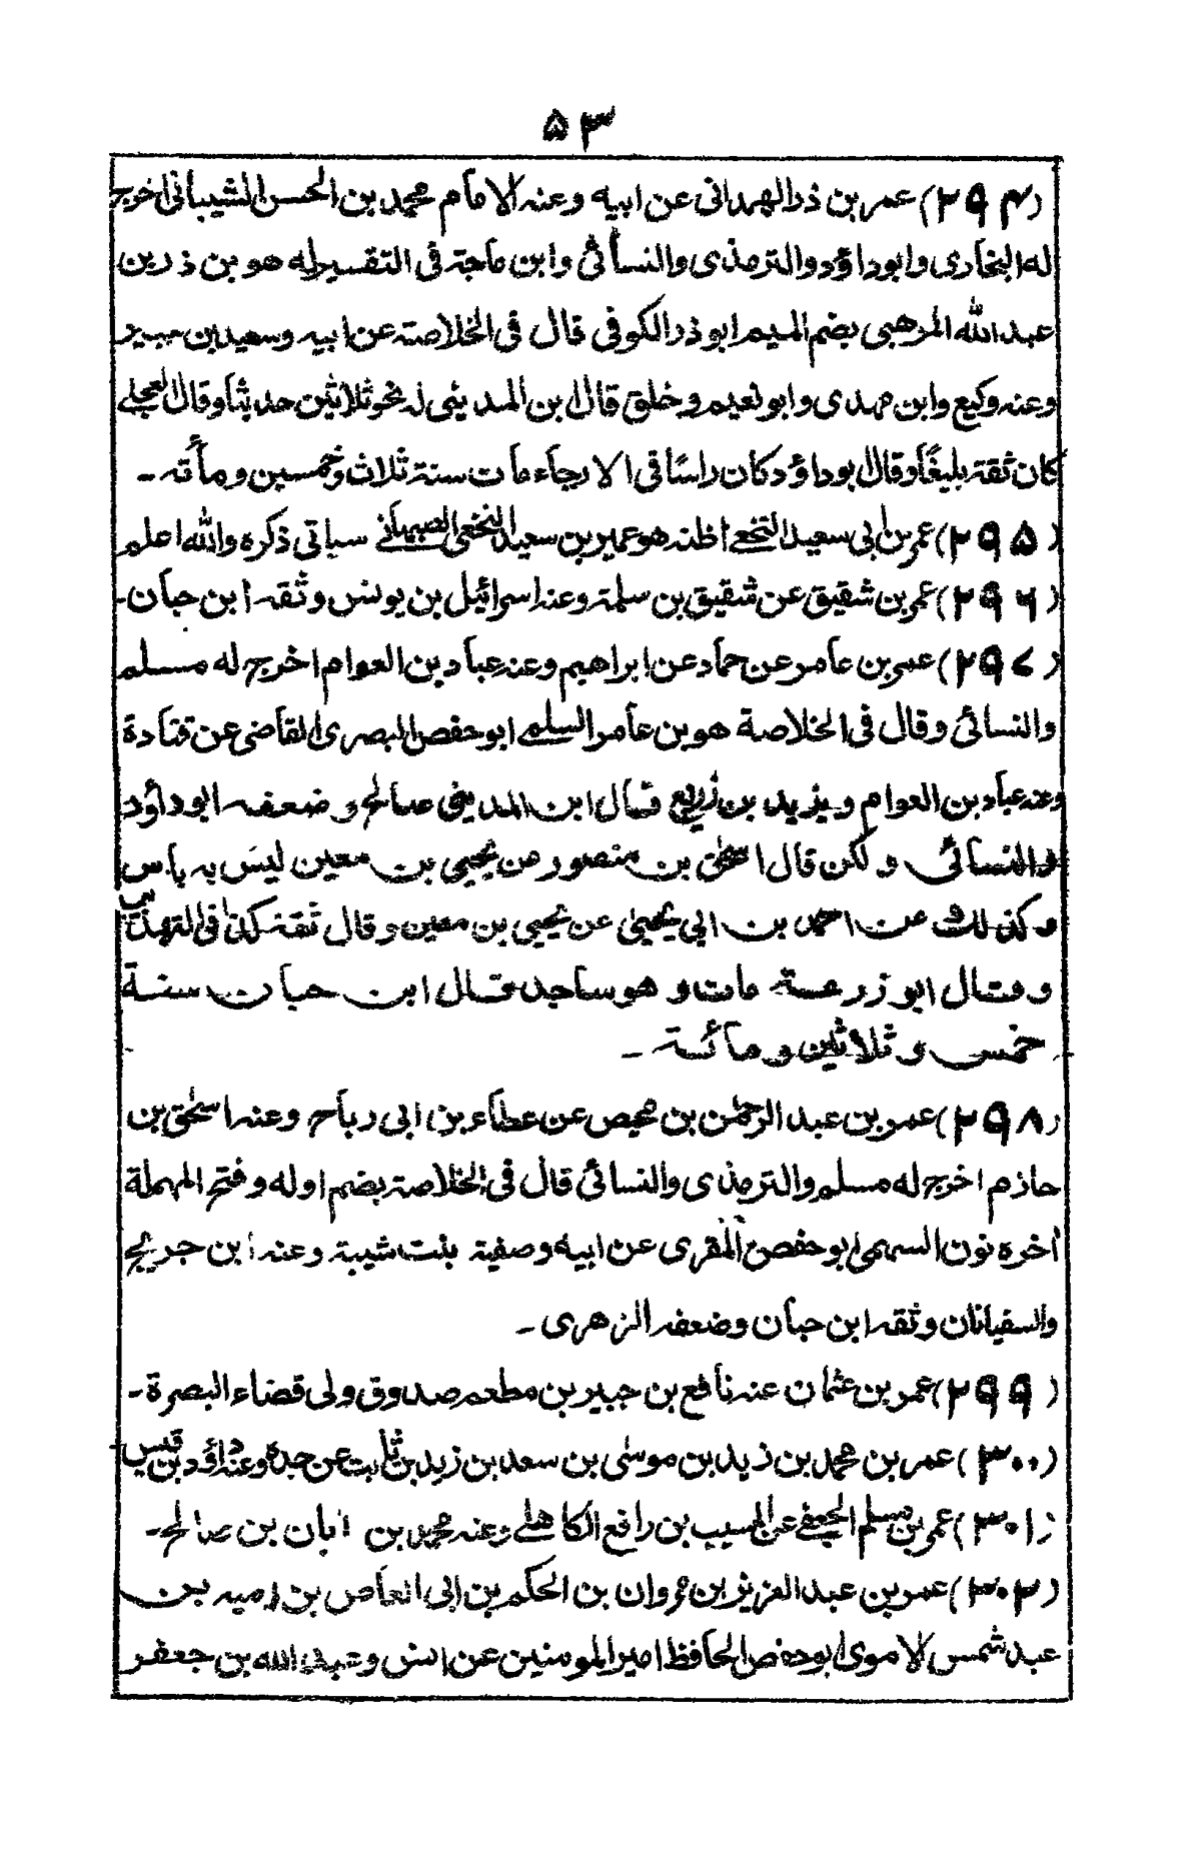 ۵۳
(۲۹۴) عمر بن ذر الهمدانی عن ابیه وعنه الامام محمد بن الحسن الشیبانی اخرج
له البخاری وابوداؤد والترمذی والنسائی وابن ماجة فی التفسیر له هو بن ذر بن
عبد الله المرهبی بضم المیم ابو ذر الکوفی قال فی الخلاصة عن ابیه وسعید بن جبیر
وعنه وکیع وابن مهدی وابو نعیم وخلق قال ابن المدینی له نحو ثلاثین حدیثا وقال العجلی
کان ثقة بلیغًا وقال ابوداؤد کان راسًا فی الارجاء مات سنة ثلاث وخمسین ومأته ـ
(۲۹۵) عمر بن ابی سعید النخعی اظنه هو عمیر بن سعید النخعی الصهبانی سیاتی ذکره والله اعلم
(۲۹۶) عمر بن شقیق عن شقیق بن سلمة وعنه اسرائیل بن یونس وثقه ابن حبان ـ
(۲۹۷) عمر بن عامر عن حماد عن ابراهیم وعنه عباد بن العوام اخرج له مسلم
والنسائی وقال فی الخلاصة هو بن عامر السلمی ابو حفص البصری القاضی عن قتادة
وعنه عباد بن العوام ویزید بن زریع قال ابن المدینی صالح وضعفه ابوداؤد
والنسائی ولکن قال اسحٰق بن منصور عن یحیی بن معین لیس به باس
وکذلك عن احمد بن ابی یحییٰ عن یحیی بن معین وقال ثقة کذا فی التهذیب
وقال ابو زرعة مات وهو ساجد قال ابن حبان سنة
خمس وثلاثین ومائة ـ
(۲۹۸) عمر بن عبد الرحمٰن بن محیص عن عطاء بن ابی رباح وعنه اسحٰق بن
حازم اخرج له مسلم والترمذی والنسائی قال فی الخلاصة بضم اوله وفتح المهملة
اخره نون السهمی ابو حفص المقری عن ابیه وصفیة بنت شیبة وعنه ابن جریج
والسفیانان وثقه ابن حبان وضعفه الزهری ـ
(۲۹۹) عمر بن عثمان عنه نافع بن جبیر بن مطعم صدوق ولی قضاء البصرة ـ
(۳۰۰) عمر بن محمد بن زید بن موسٰی بن سعد بن زید بن ثابت عن جده وعنه داؤد بن قیس
(۳۰۱) عمر بن مسلم الجعفی عن المسیب بن رافع الکاهلی وعنه محمد بن ابان بن صالح ـ
(۳۰۲) عمر بن عبد العزیز بن مروان بن الحکم بن ابی العاص بن امیه بن
عبد شمس الاموی ابو حفص الحافظ امیر المومنین عن انس وعبد الله بن جعفر